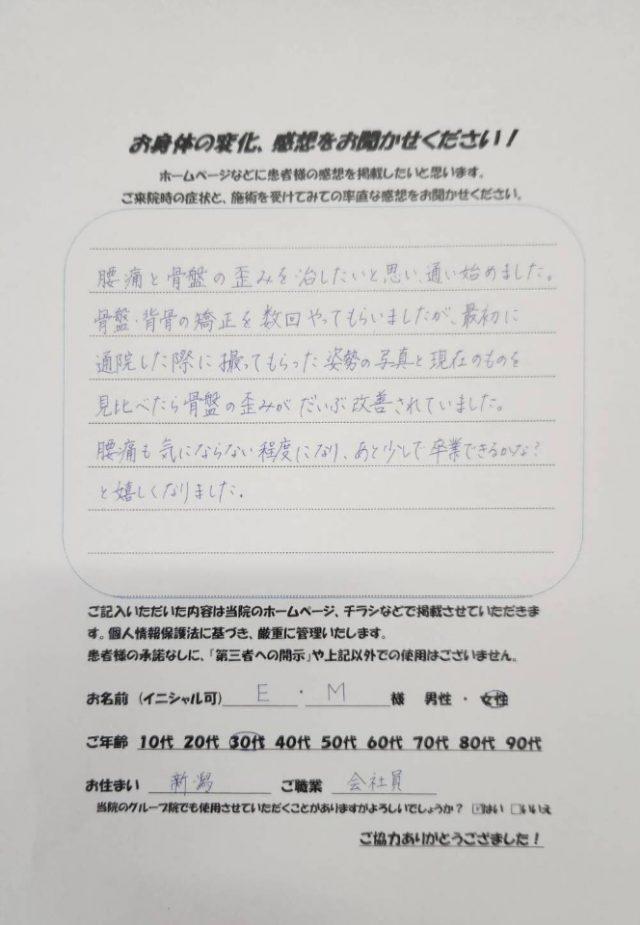 お身体の変化、感想をお聞かせください！
ホームページなどに患者様の感想を掲載したいと思います。
ご来院時の症状と、施術を受けてみての率直な感想をお聞かせください。
腰痛と骨盤の歪みを治したいと思い、通い始めました。
骨盤・背骨の矯正を数回やってもらいましたが、最初に
通院した際に撮ってもらった姿勢の写真と現在のものを
見比べたら骨盤の歪みがだいぶ改善されていました。
腰痛も気にならない程度になり、あと少しで卒業できるかな？
と嬉しくなりました。
ご記入いただいた内容は当院のホームページ、チラシなどで掲載させていただきま
す。個人情報保護法に基づき、厳重に管理いたします。
患者様の承諾なしに、「第三者への開示」や上記以外での使用はございません。
お名前（イニシャル可） E ・ M 様 男性 ・ 女性
ご年齢 10代 20代 30代 40代 50代 60代 70代 80代 90代
お住まい 新潟 ご職業 会社員
当院のグループ院でも使用させていただくことがありますがよろしいでしょうか？ ☑はい □いいえ
ご協力ありがとうござました！